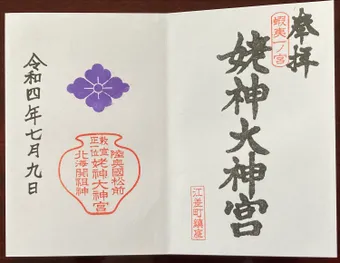 奉拝
蝦夷一ノ宮
姥神大神宮
江差町鎮座
陸奥國松前
勅宣正一位
姥神大神宮
北海開祖神
令和四年七月九日